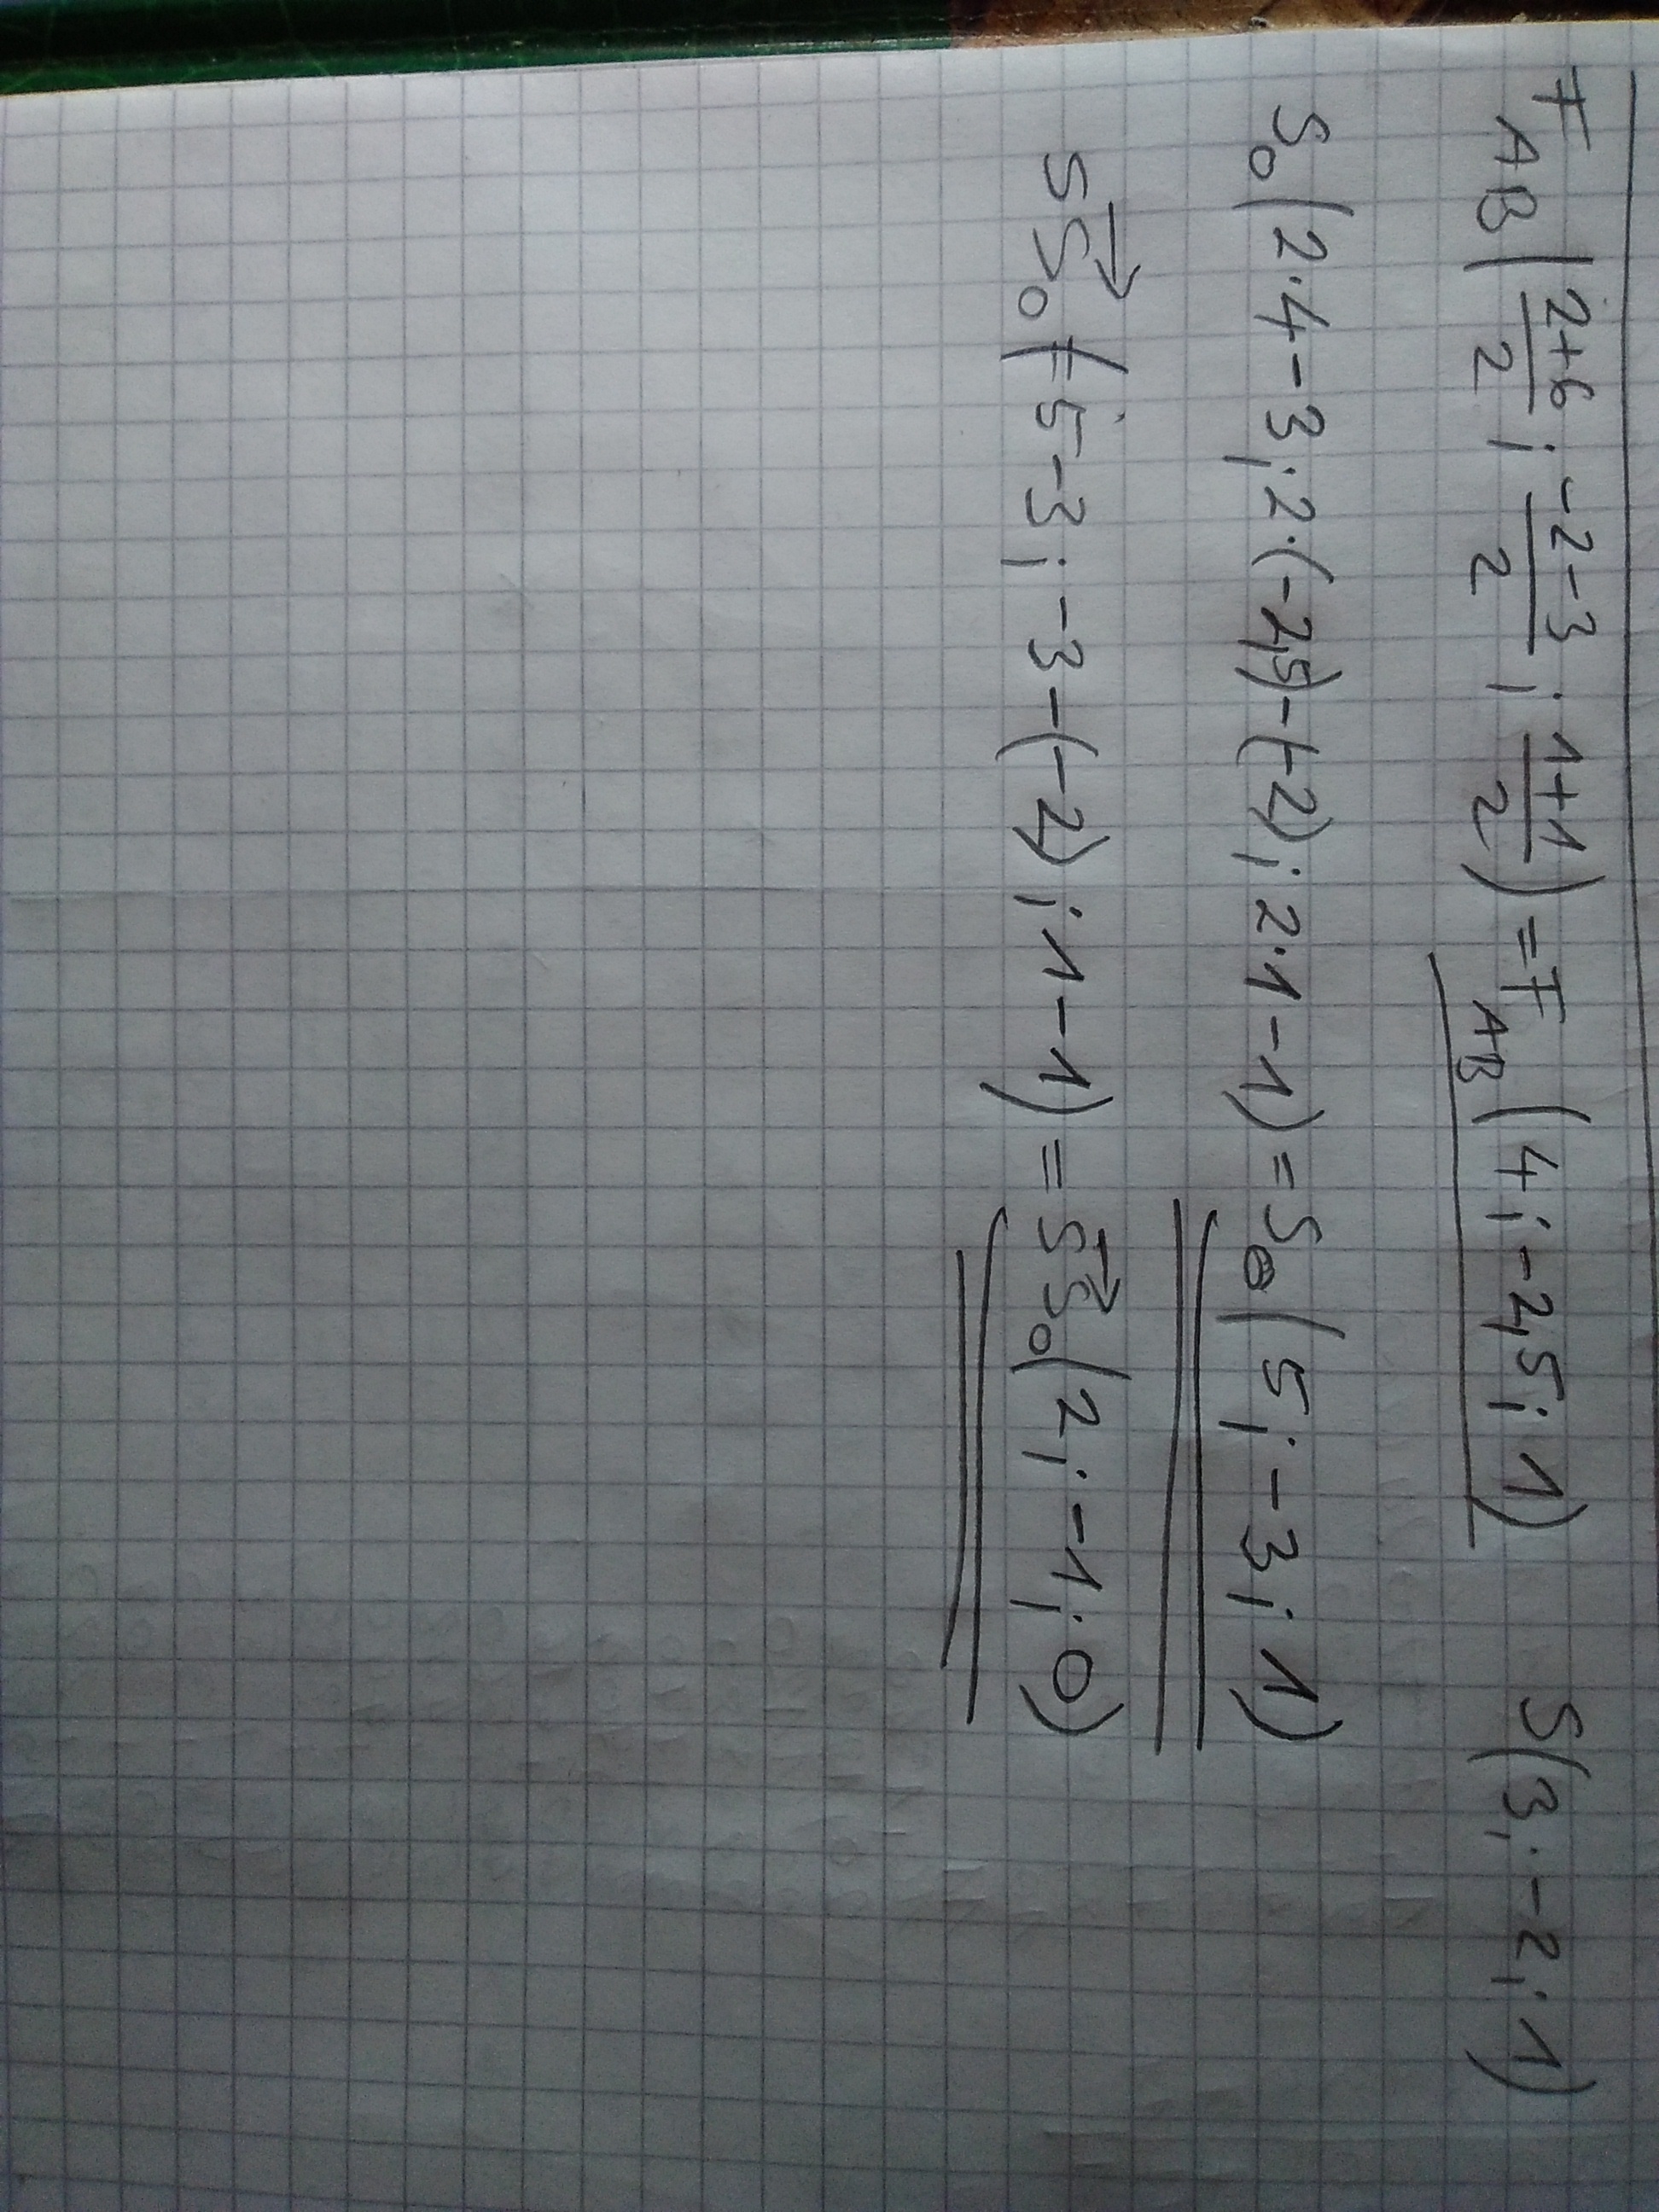 F_AB (2+6/2 ; -2-3/2 ; 1+1/2) = F_AB (4 ; -2,5 ; 1) S(3 ; -2 ; 1)
S₀ (2·4-3 ; 2·(-2,5)-(-2) ; 2·1-1) = S₀ (5 ; -3 ; 1)
SS₀→ (5-3 ; -3-(-2) ; 1-1) = SS₀→ (2 ; -1 ; 0)